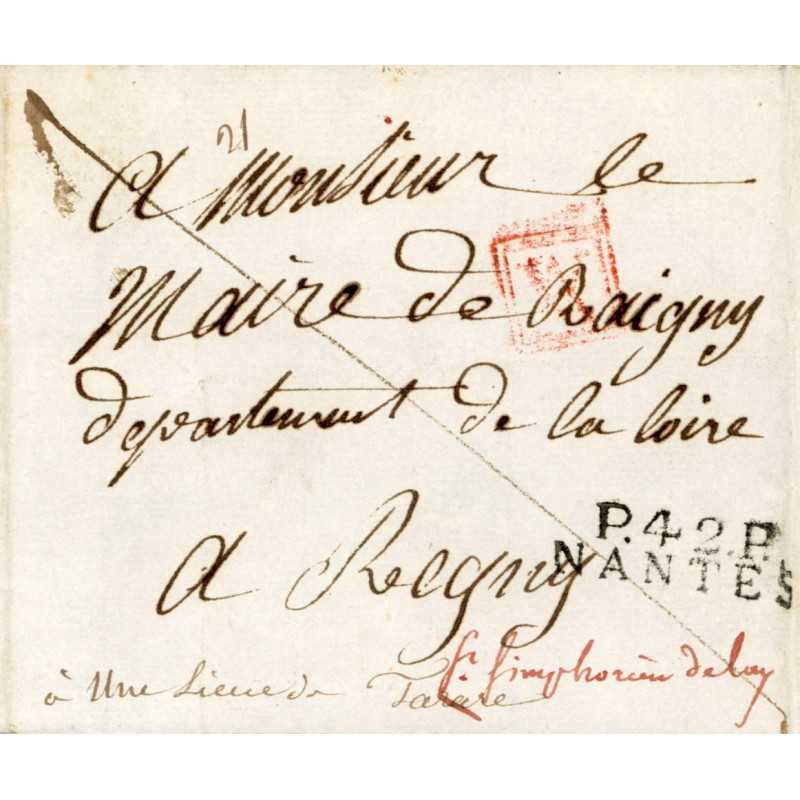 21
A Monsieur le
Maire de Raigny
departement de la loire
a Regny
P.42.P.
NANTES
St. Simphorien de lay
à Une Lieue de Tarare